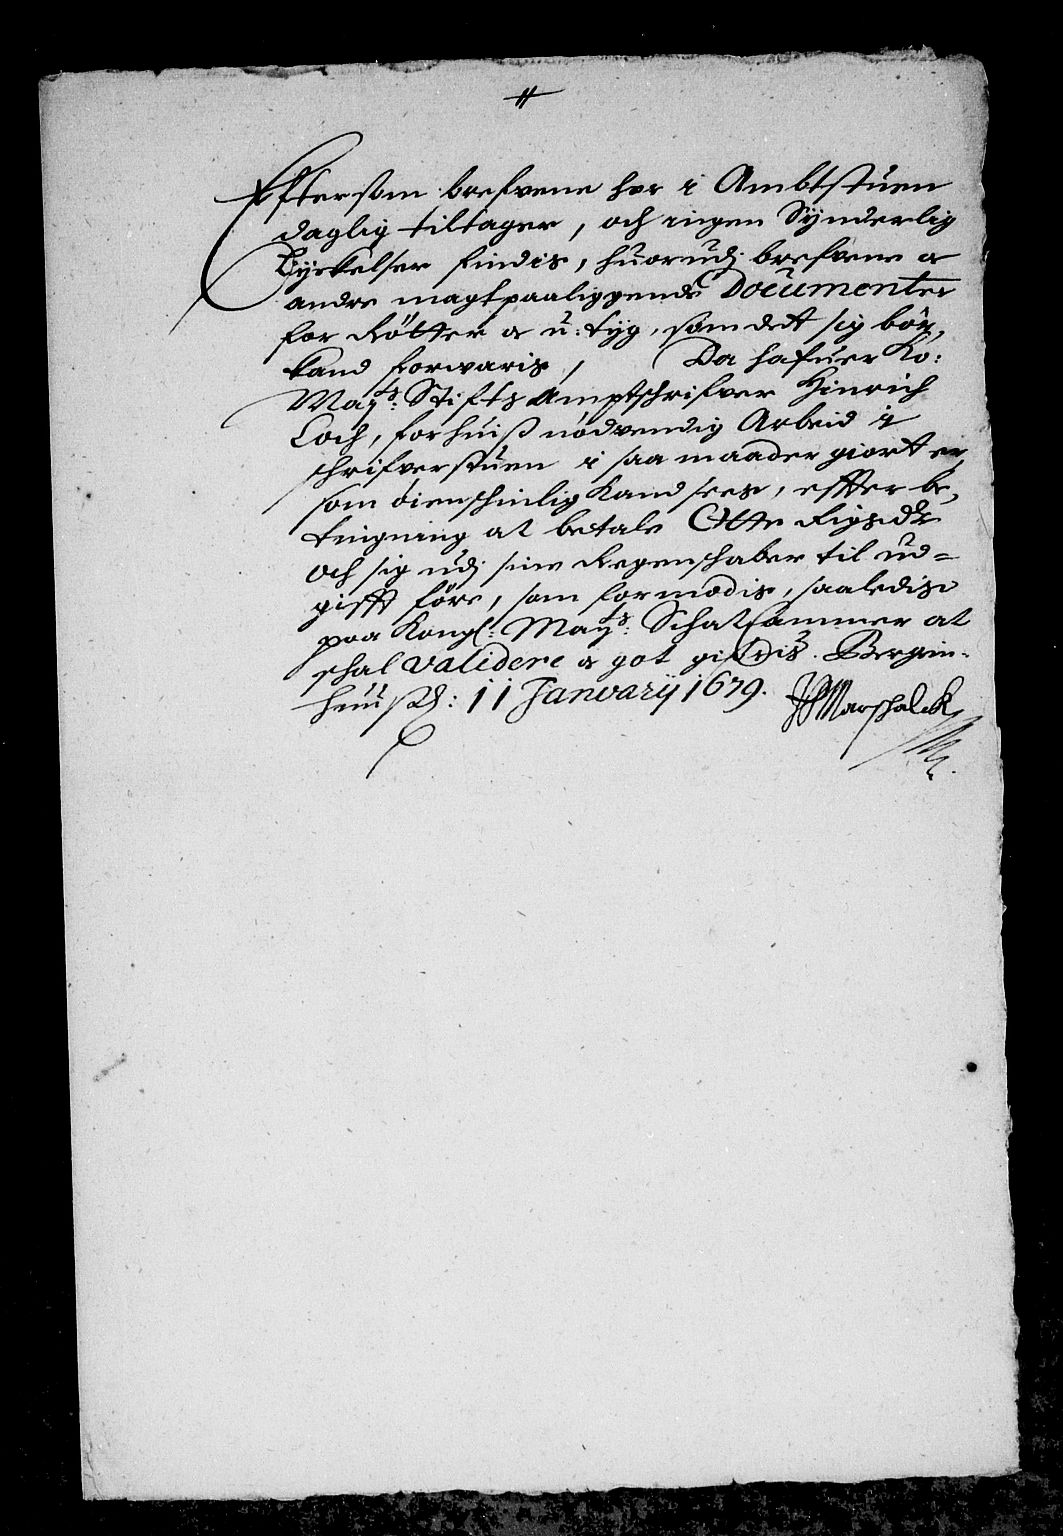 Eftersom brefvene her i Ambtstuen
daglig tiltager, och ingen Synderlig
findis, huorudj brefvene oc
andre magtpaaliggende Documenter
for Rötter oc u:tyg, som det sig bör,
kand forwaris, Da hafuer Ko:
Mayts: Stifts Amptschrifver Hinrich
Loch, for huiß nödvendig Arbeid i
schrifverstuen i saa maader giort er,
som öienschinlig kand sees, effter be-
tingning at betale Otte Rigsdr
och sig udj sine Regenschaber til ud=
gifft före, som formodis, saaledis
paa Kongl: Mayts: Schatkammer at
schal validere oc got giöris. Bergen-
huus: 11 January 1679.
Marschalck